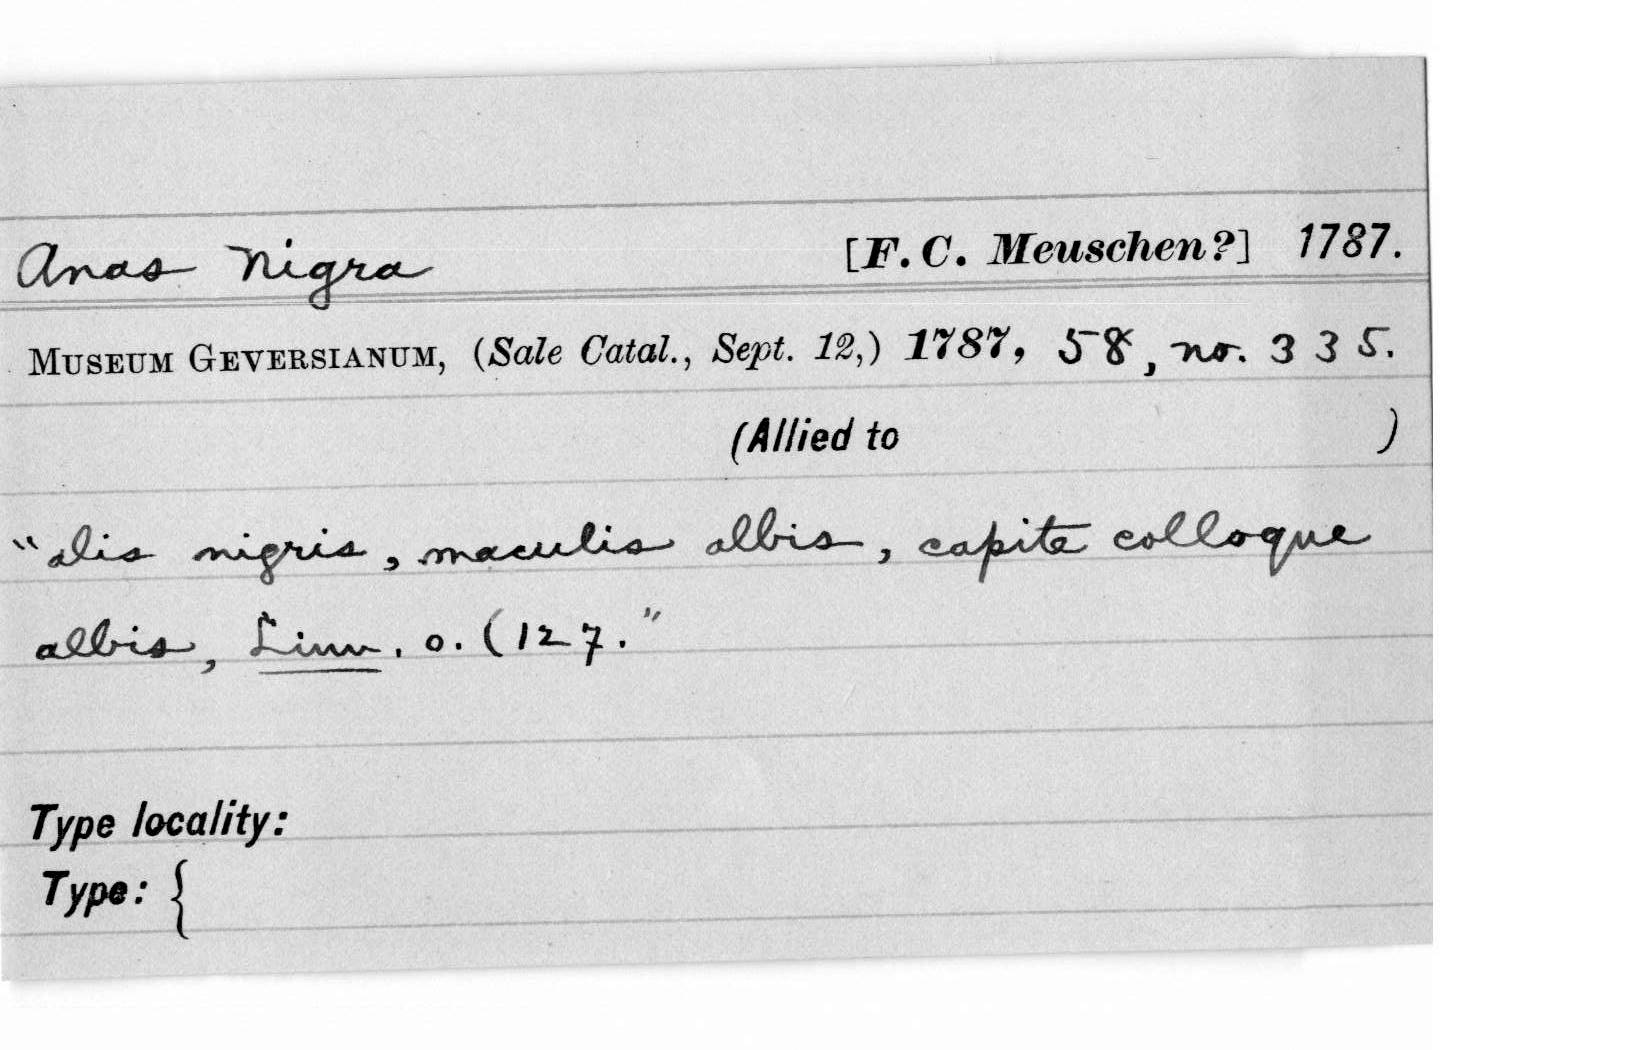 Anas nigra [F. C. Meuschen?] 1787.
MUSEUM GEVERSIANUM, (Sale Catal., Sept. 12,) 1787, 58, no. 335.
(Allied to )
"alis nigris, maculis albis, capite colloque
albis, Linn. o. (127."
Type locality:
Type: {